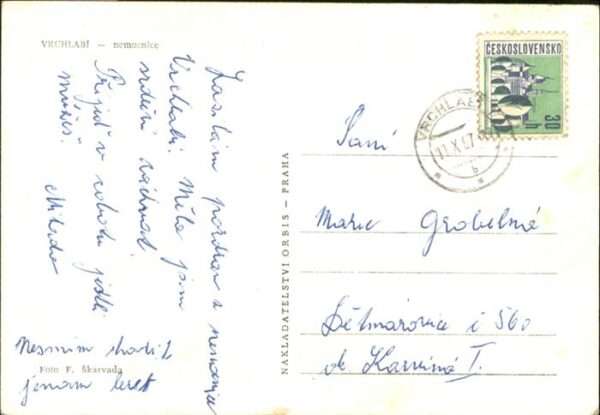 VRCHLABÍ – nemocnice
Zasílám pozdrav z nemocnice
Vrchlabí. Měla jsem
srdeční záchvat.
Přijeď v sobotu jestli
můžeš.
Milada
Nesmím chodit
jenom ležet
Foto F. Škarvada
NAKLADATELSTVÍ ORBIS – PRAHA
ČESKOSLOVENSKO
30 h
VRCHLABÍ
11.X.67
b
Paní
Marie Grobelná
Dětmarovice č 560
ok Karviná I.